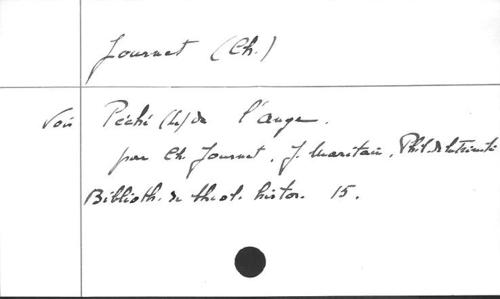 Journet (Ch.)
Voir Péché (Le) de l'ange.
par Ch. Journet, J. Maritain, Phil. de la Trinité
Biblioth. de théol. histor. 15.